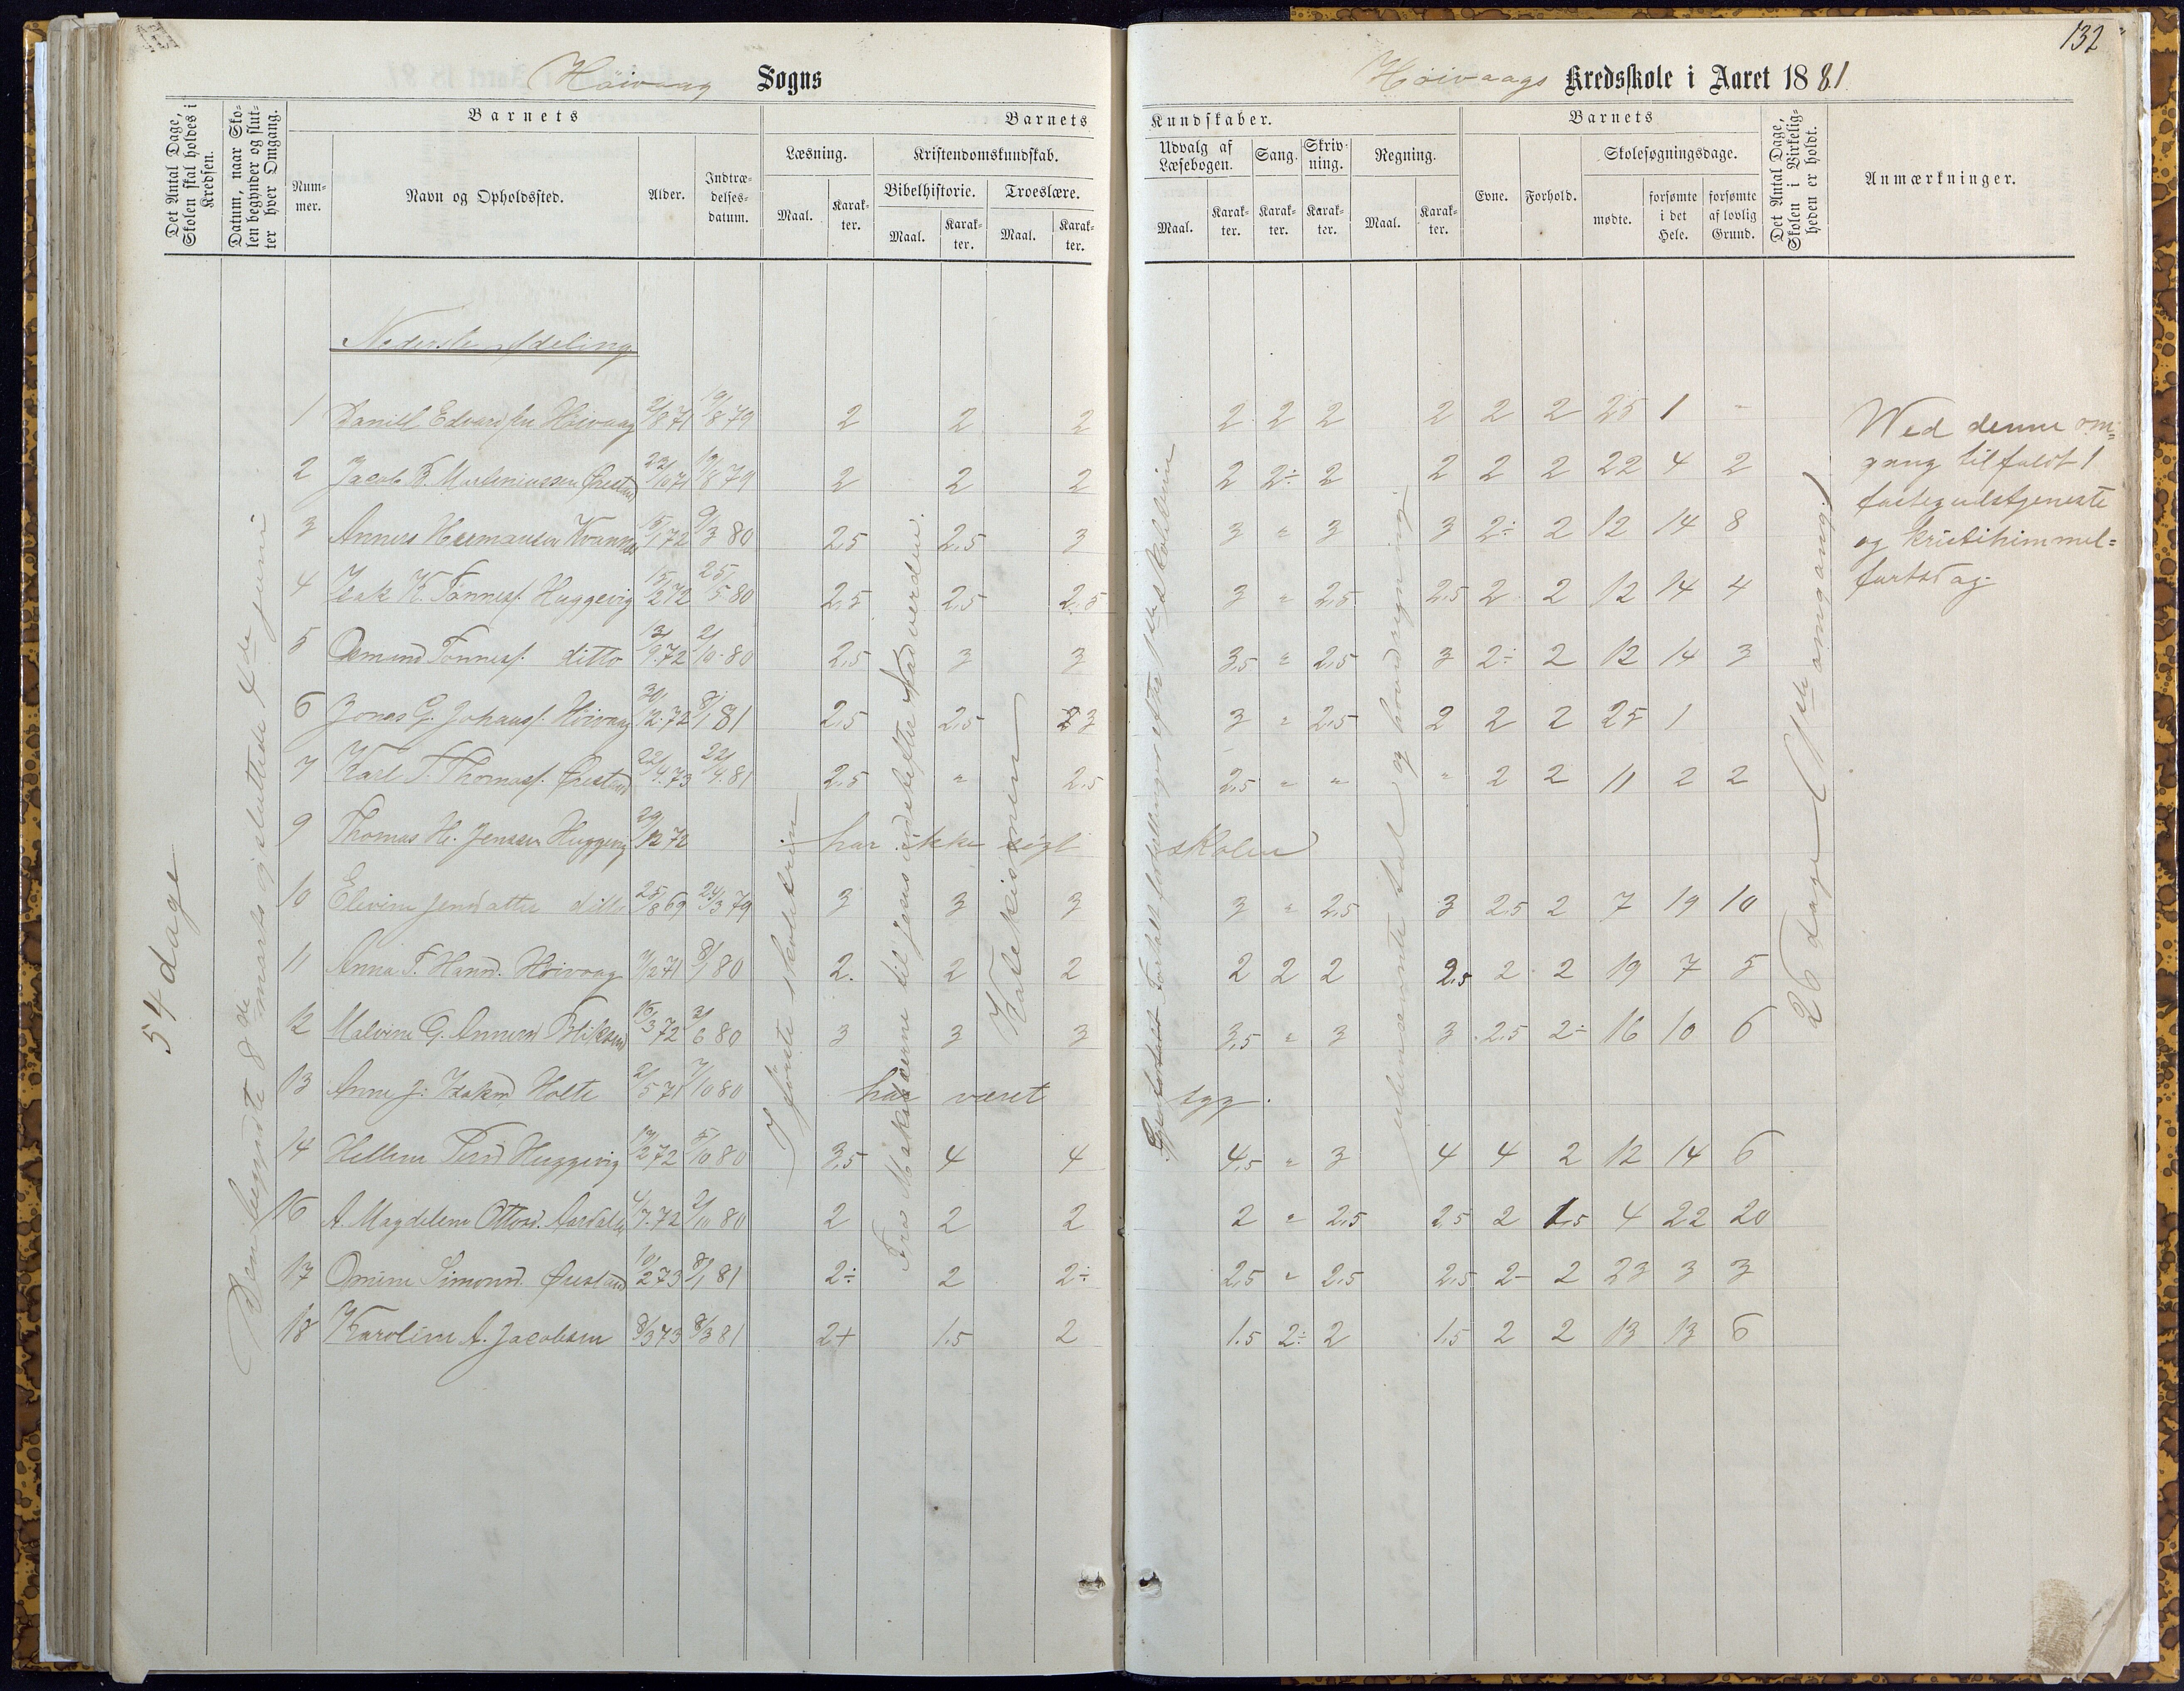 132
Höivaag Sogns
Höivaags Kredsskole i Aaret 1881
Det Antal Dage, Skolen skal holdes i Kredsen.
Datum, naar Skolen begynder og slutter hver Omgang.
Barnets
Nummer.
Navn og Opholdssted.
Alder.
Indtrædelsesdatum.
Barnets Kundskaber.
Læsning.
Maal.
Karakter.
Kristendomskundskab.
Bibelhistorie.
Maal.
Karakter.
Troeslære.
Maal.
Karakter.
Udvalg af Læsebogen.
Maal.
Karakter.
Sang.
Karakter.
Skrivning.
Karakter.
Regning.
Maal.
Karakter.
Barnets
Evne.
Forhold.
Skolesøgningsdage.
mødte.
forsømte i det Hele.
forsømte af lovlig Grund.
Det Antal Dage, Skolen i Virkeligheden er holdt.
Anmærkninger.
54 dage
Den begyndte 8de marts og sluttede 4de juni
Nederste afdeling
1 Daniel Edvardsen Höivaag 2/8 71 19/8 79 2 2 2 2 2 2 2 2 2 25 1 "
2 Jacob Marleniussen Örestad 19/8 79 2 2 2 2 2÷ 2 2 2 2 22 4 2
3 Anners Hermansen 15/1 72 9/3 80 2,5 2,5 3 3 " 3 3 2÷ 2 12 14 8
4 Isak K. Tønnesf. Huggevig 15/2 72 25/5 80 2,5 2,5 2,5 3 " 2,5 2,5 2 2 12 14 4
5 Osmund Tønnesf. ditto 13/9 72 2/10 80 2,5 3 3 3,5 " 2,5 3 2÷ 2 12 14 3
6 Jonas G. Johansf. Höivaag 30/12 72 8/1 81 2,5 2,5 3 3 " 2,5 2 2 2 25 1
7 Karl T. Thomasf. Örestad 22/4 73 22/4 81 2,5 " 2,5 2,5 " " " 2 2 11 2 2
9 Thomas H. Jenssen Huggevig 29/12 72 har ikke søgt skolen
10 Elevine Jensdatter ditto 25/8 69 24/3 79 3 3 3 3 " 2,5 3 2,5 2 7 19 10
11 Anna T. Hansd. Höivaag 11/12 71 8/1 80 2. 2 2 2 2 2 2,5 2 2 19 7 5
12 Malvine G. Annersd 16/3 72 2/6 80 3 3 3 3,5 " 3 3 2,5 2÷ 16 10 6
13 Anne J. Isaksd Holte 2/5 71 7/10 80 har været syg.
14 Hellene Terisd Huggevig 17/2 72 5/10 80 3,5 4 4 4,5 " 3 4 4 2 12 14 6
16 A. Magdelene Ottosd. 4/7 72 2/10 80 2 2 2 2 " 2,5 2,5 2 1,5 4 22 20
17 Omine Simonsd. Örestad 10/2 73 8/1 81 2÷ 2 2÷ 2,5 " 2,5 2,5 2- 2 23 3 3
18 Karoline A. Jacobsen 8/3 73 8/3 81 2+ 1,5 2 1.5 2÷ 2 1,5 2 2 13 13 6
I første skoletrin
Fra Makabæerne til Jesus indstifter Nadverden.
Katekismen
fortalt fortællinger efter 1ste skoletrin
ubenævnte tal og hovedregning
26 dage (1ste omgang.)
Ved denne om=
gang tilfaldt 1
fastegudstjeneste
og Kristihimmel=
fartsdag.